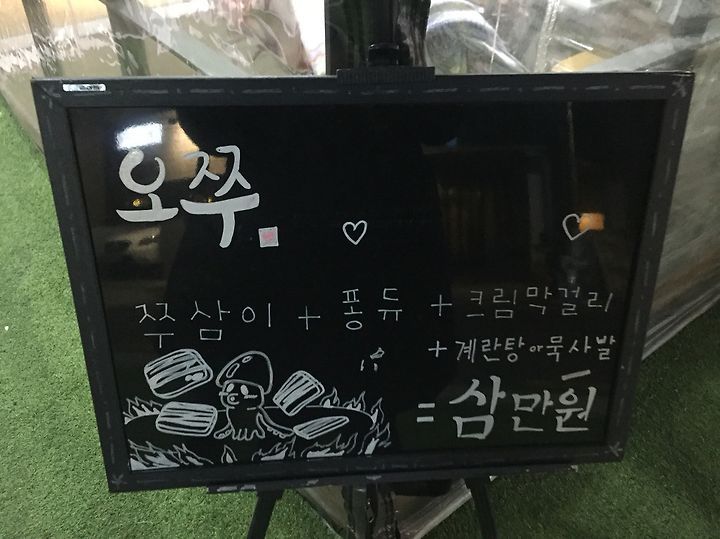 오쭈
쭈삼이 + 퐁듀 + 크림막걸리
+ 계란탕 or 묵사발
= 삼만원